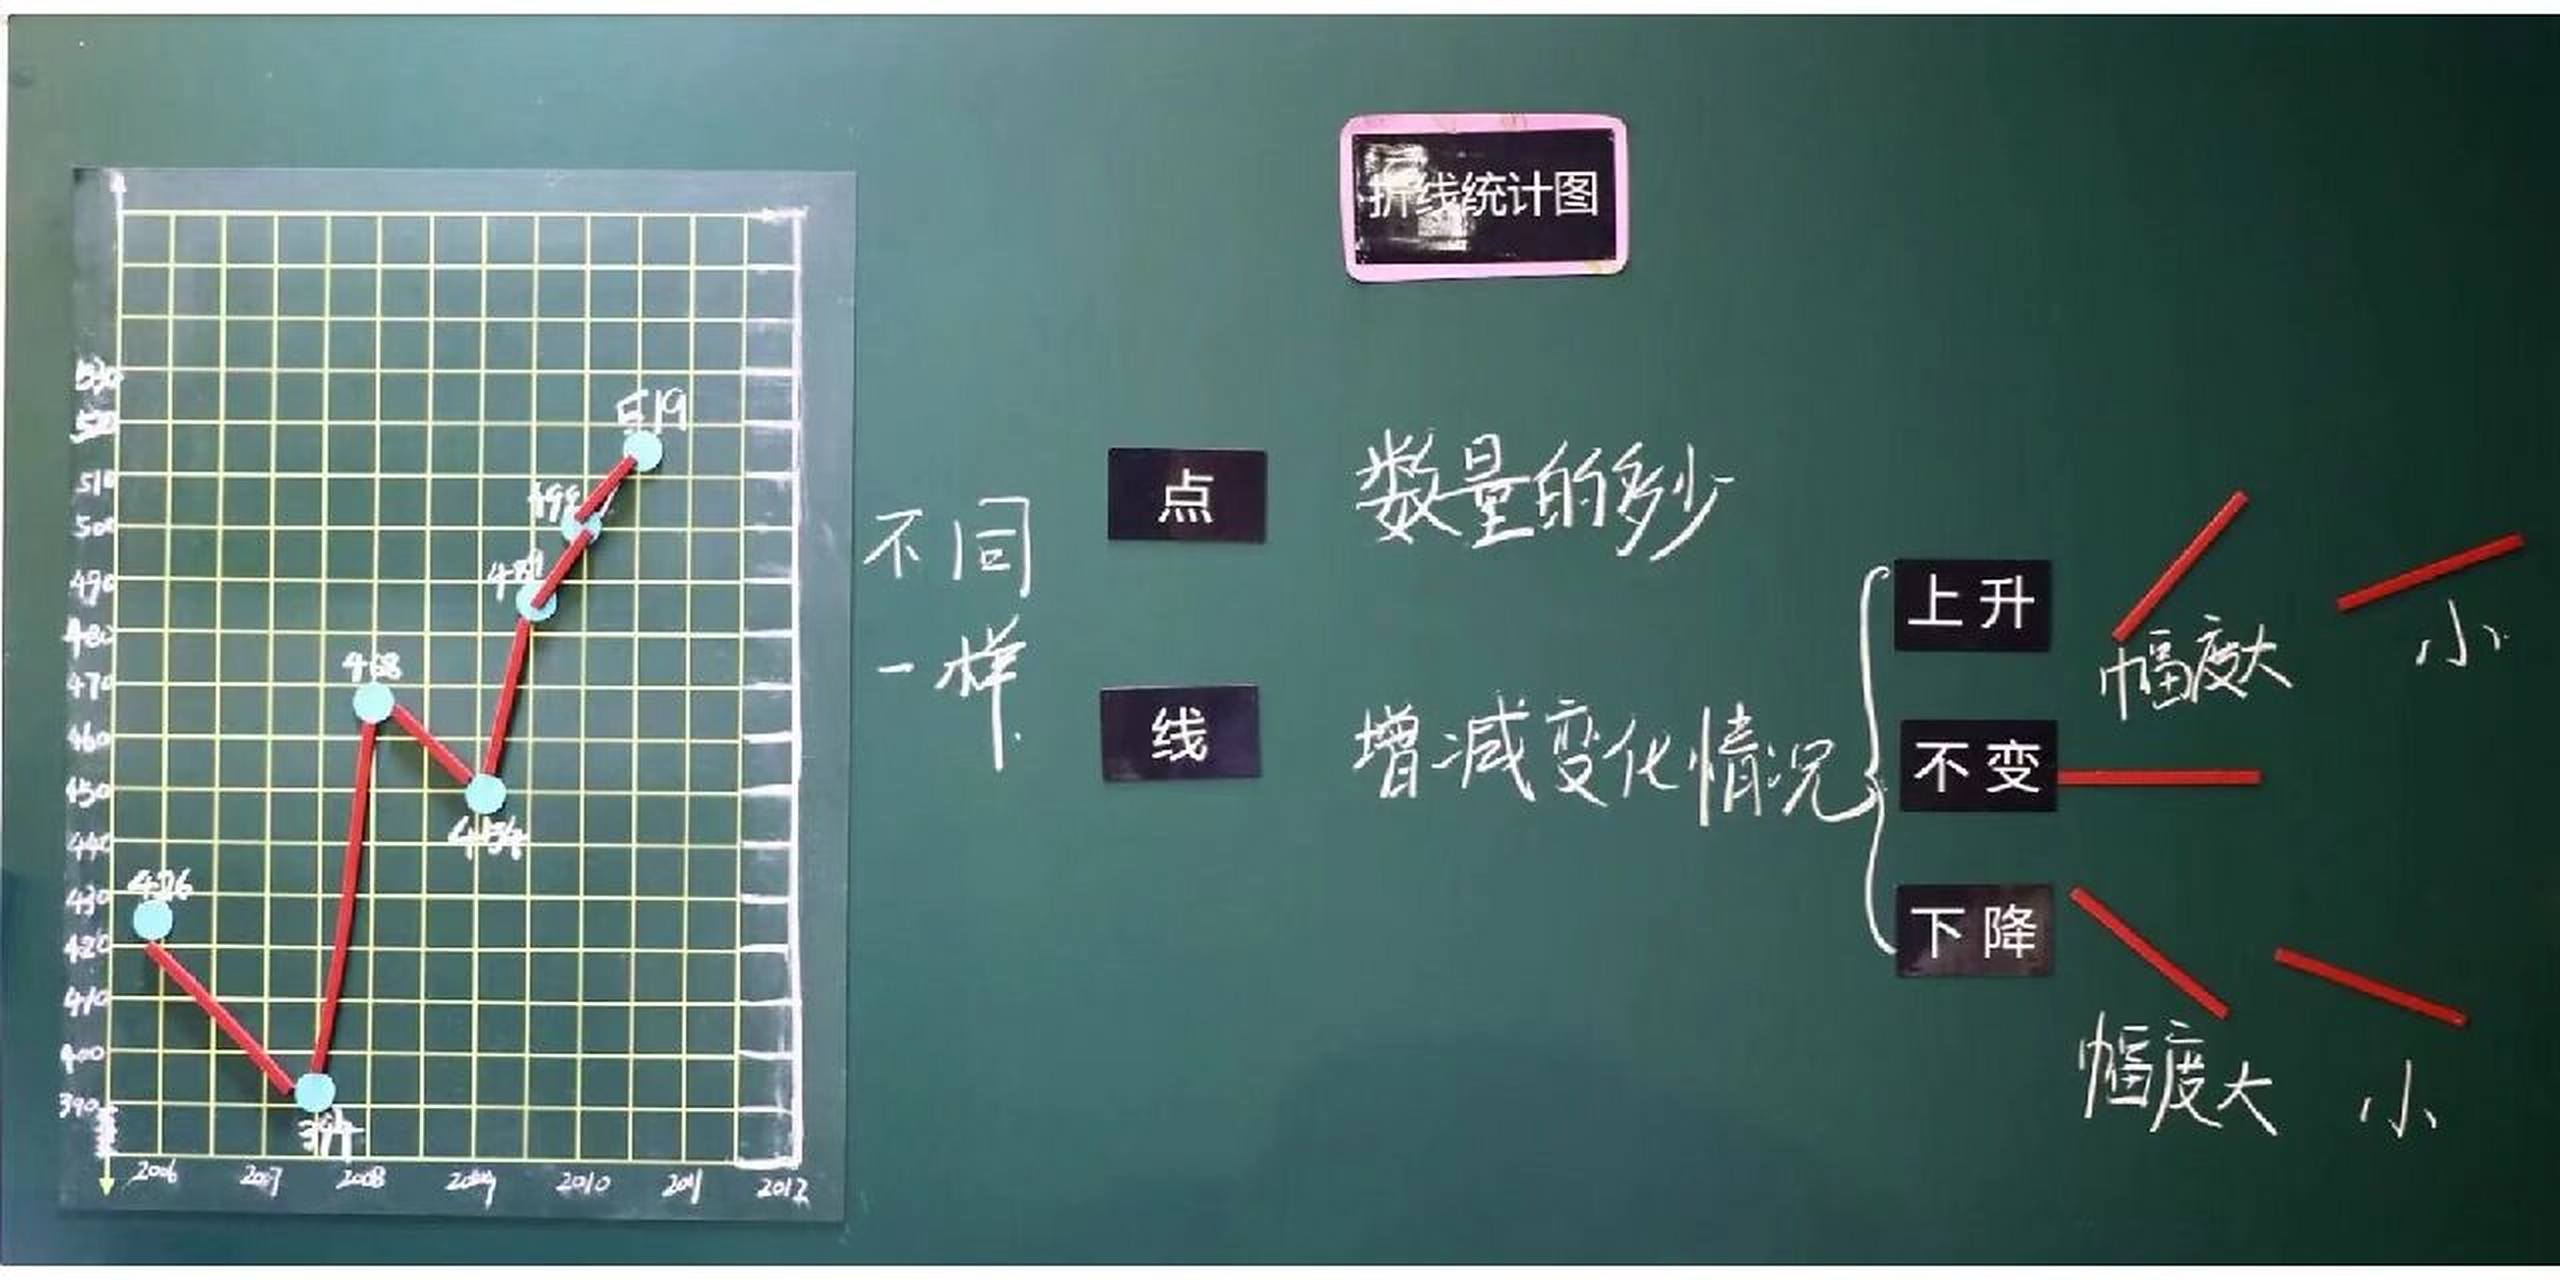 折线统计图
530
520
510
500
490
480
470
460
450
440
430
420
410
400
390
519
499
489
468
454
426
394
2006 2007 2008 2009 2010 2011 2012
不同
一样
点 数量的多少
线 增减变化情况
上升
幅度大 小
不变
下降
幅度大 小